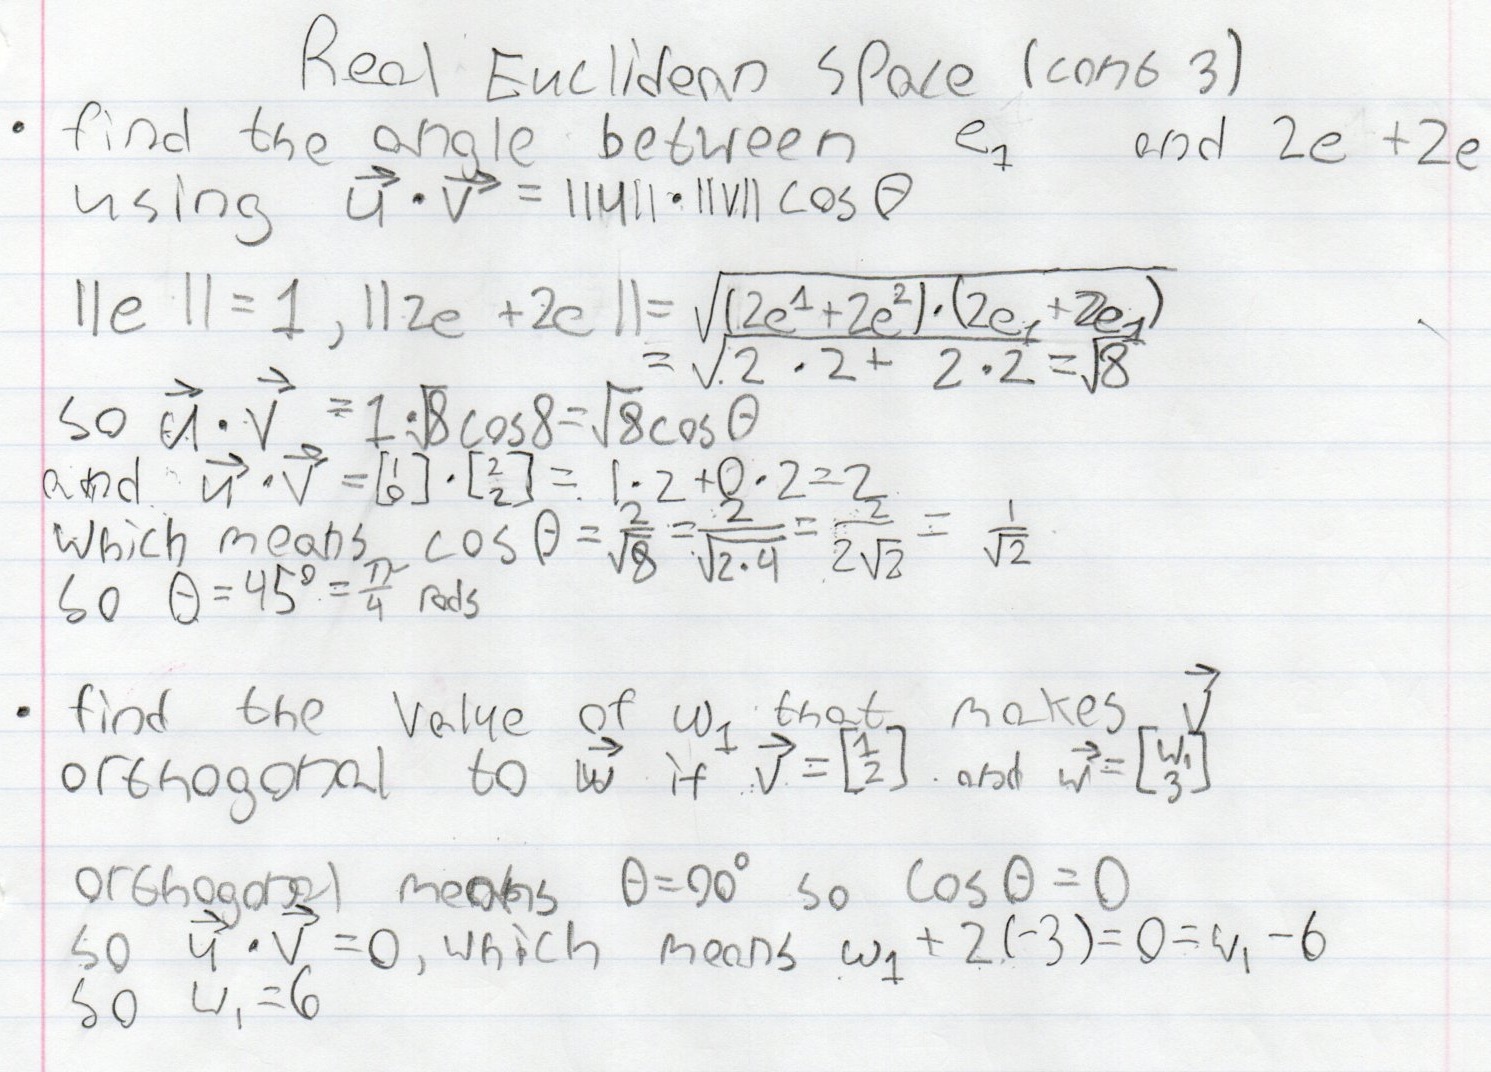 Real Euclidean space (cont 3)
• find the angle between e₁ and 2e +2e
using u⃗ · v⃗ = ||u||·||v|| cos θ
||e || = 1, ||2e +2e || = √((2e¹+2e²)·(2e₁+2e₁))
= √(2 · 2 + 2 · 2) = √8
so u⃗ · v⃗ = 1·√8 cos8 = √8 cos θ
and u⃗ · v⃗ = [1 0] · [2 2] = 1·2+0·2=2
which means cos θ = 2/√8 = 2/√(2·4) = 2/(2√2) = 1/√2
so θ = 45° = π/4 rads
• find the value of w₁ that makes v⃗
orthogonal to w⃗ if v⃗ = [1 2] and w⃗ = [w₁ 3]
orthogonal means θ=90° so cos θ = 0
so u⃗ · v⃗ = 0, which means w₁ + 2(-3) = 0 = w₁ - 6
so w₁ = 6